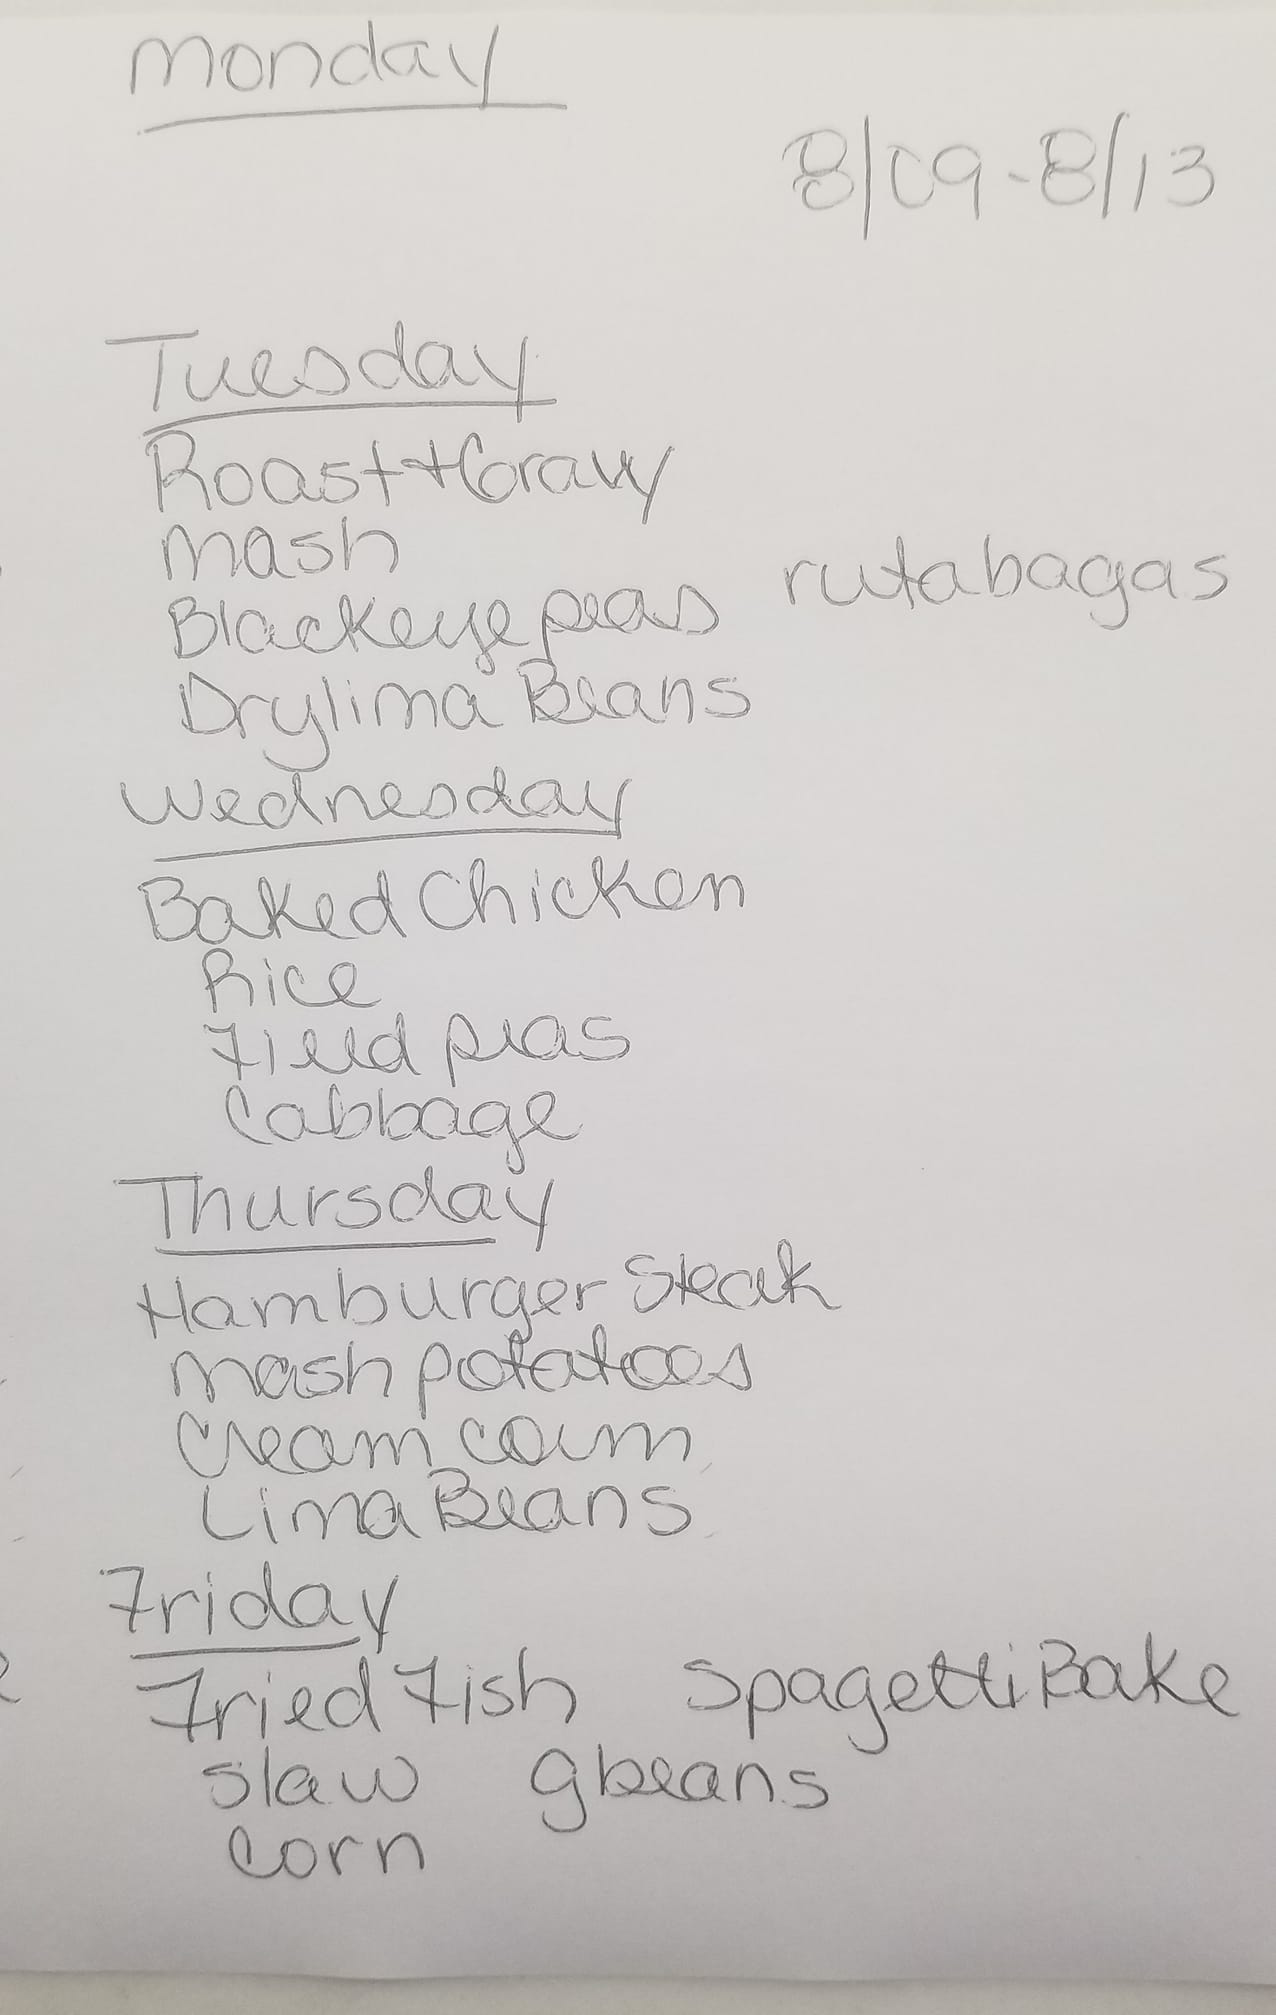 Monday
8/09-8/13
Tuesday
Roast + Gravy
Mash
rutabagas
Blackeye peas
Dry lima Beans
Wednesday
Baked Chicken
Rice
Field peas
Cabbage
Thursday
Hamburger Steak
Mash potatoes
Cream corn
Lima Beans
Friday
Fried Fish Spagetti Bake
Slaw gbeans
Corn